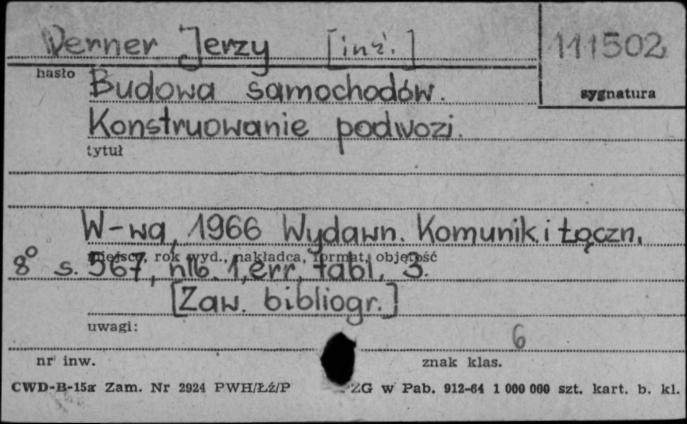 Werner Jerzy [inż.] 111502
hasło
sygnatura
Budowa samochodów.
Konstruowanie podwozi.
tytuł
W-wa, 1966 Wydawn. Komunik. i Łączn.
miejsce, rok wyd., nakładca, format, objętość
8° s. 567, nlb. 1, err., tabl. 3.
[Zaw. bibliogr.]
uwagi:
6
nr inw. znak klas.
CWD-B-15a Zam. Nr 2924 PWH/Łź/P ZG w Pab. 912-64 1 000 000 szt. kart. b. kl.